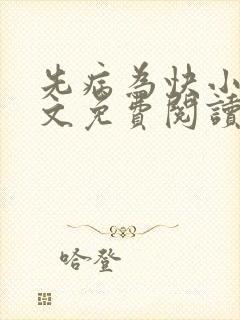 先病為快小
文免費閱讀
哈登